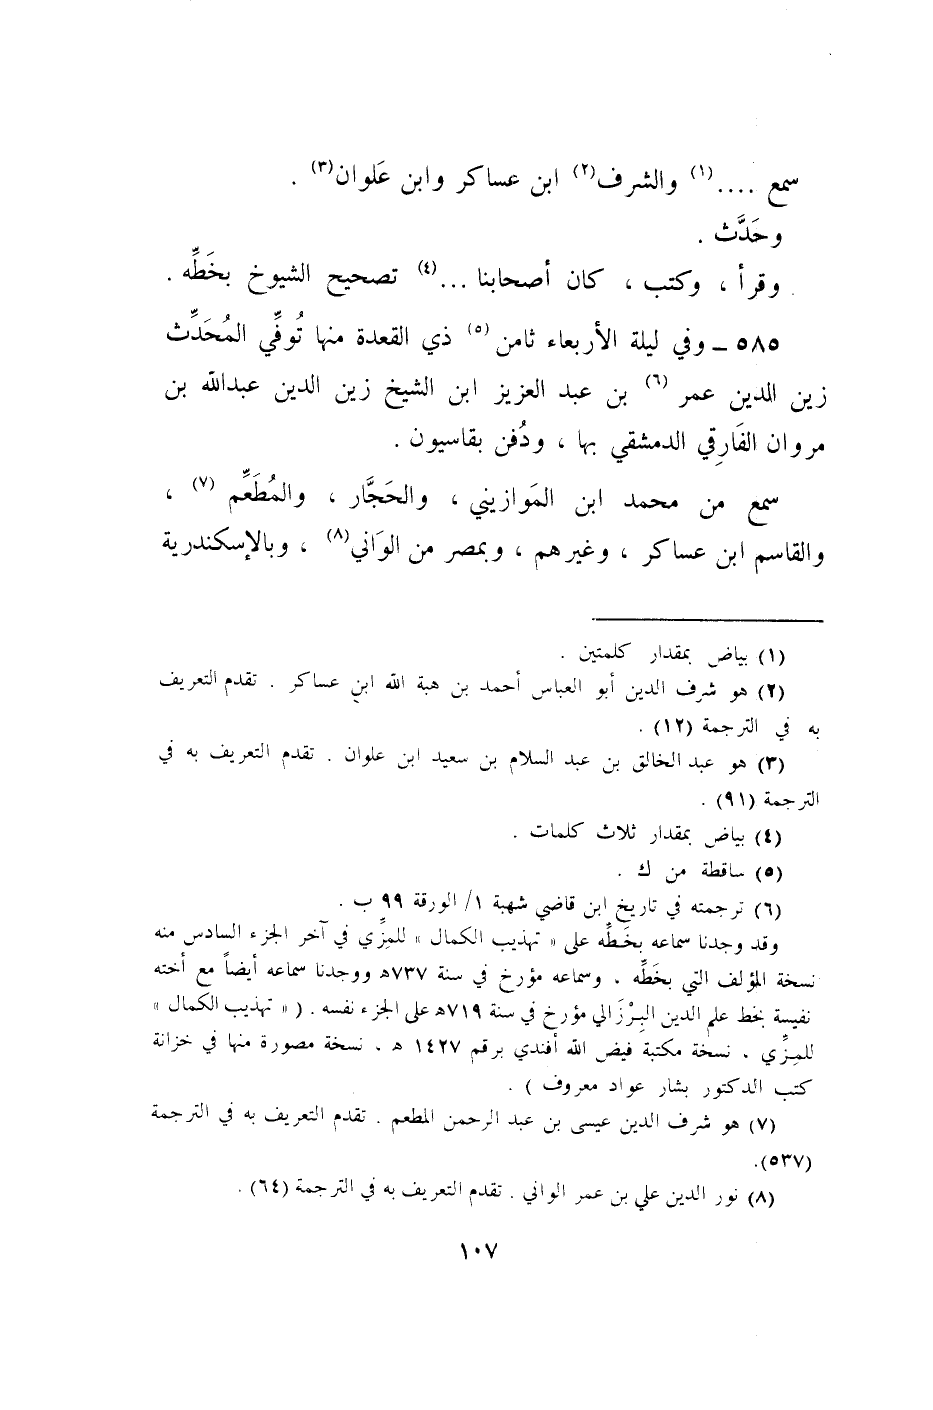 سمع ....(١) والشرف(٢) ابن عساكر وابن عَلوان(٣) .
وحَدَّث .
وقرأ ، وكتب ، كان أصحابنا ...(٤) تصحيح الشيوخ بخَطِّه .
٥٨٥ ـ وفي ليلة الأربعاء ثامن(٥) ذي القعدة منها تُوفِّي المُحَدِّث
زين الدين عمر(٦) بن عبد العزيز ابن الشيخ زين الدين عبدالله بن
مروان الفَارِقي الدمشقي بها ، ودُفن بقاسيون .
سمع من محمد ابن المَوازيني ، والحَجَّار ، والمُطَعِّم(٧) ،
والقاسم ابن عساكر ، وغيرهم ، وبمصر من الوَاني(٨) ، وبالإسكندرية
(١) بياض بمقدار كلمتين .
(٢) هو شرف الدين أبو العباس أحمد بن هبة الله ابن عساكر . تقدم التعريف
به في الترجمة (١٢) .
(٣) هو عبد الخالق بن عبد السلام بن سعيد ابن علوان . تقدم التعريف به في
الترجمة (٩١) .
(٤) بياض بمقدار ثلاث كلمات .
(٥) ساقطة من ك .
(٦) ترجمته في تاريخ ابن قاضي شهبة ١/ الورقة ٩٩ ب .
وقد وجدنا سماعه بخَطِّه على « تهذيب الكمال » للمزِّي في آخر الجزء السادس منه
نسخة المؤلف التي بخَطِّه . وسماعه مؤرخ في سنة ٧٣٧هـ ووجدنا سماعه أيضاً مع أخته
نفيسة بخط علم الدين البِرْزَالي مؤرخ في سنة ٧١٩هـ على الجزء نفسه . ( « تهذيب الكمال »
للمِزِّي . نسخة مكتبة فيض الله أفندي برقم ١٤٢٧ هـ . نسخة مصورة منها في خزانة
كتب الدكتور بشار عواد معروف ) .
(٧) هو شرف الدين عيسى بن عبد الرحمن المطعم . تقدم التعريف به في الترجمة
(٥٣٧).
(٨) نور الدين علي بن عمر الواني . تقدم التعريف به في الترجمة (٦٤) .
١٠٧